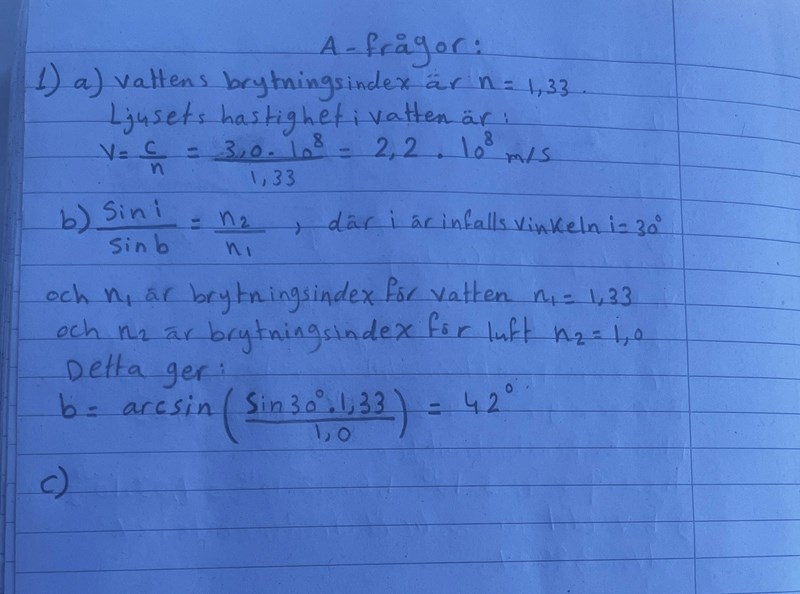 A-frågor:
1) a) vattens brytningsindex är n = 1,33.
Ljusets hastighet i vatten är:
v = c/n = 3,0 · 10⁸/1,33 = 2,2 · 10⁸ m/s
b) sin i/sin b = n₂/n₁ , där i är infalls vinkeln i = 30°
och n₁ är brytningsindex för vatten n₁ = 1,33
och n₂ är brytningsindex för luft n₂ = 1,0
Detta ger:
b = arcsin (sin 30° · 1,33/1,0) = 42°
c)